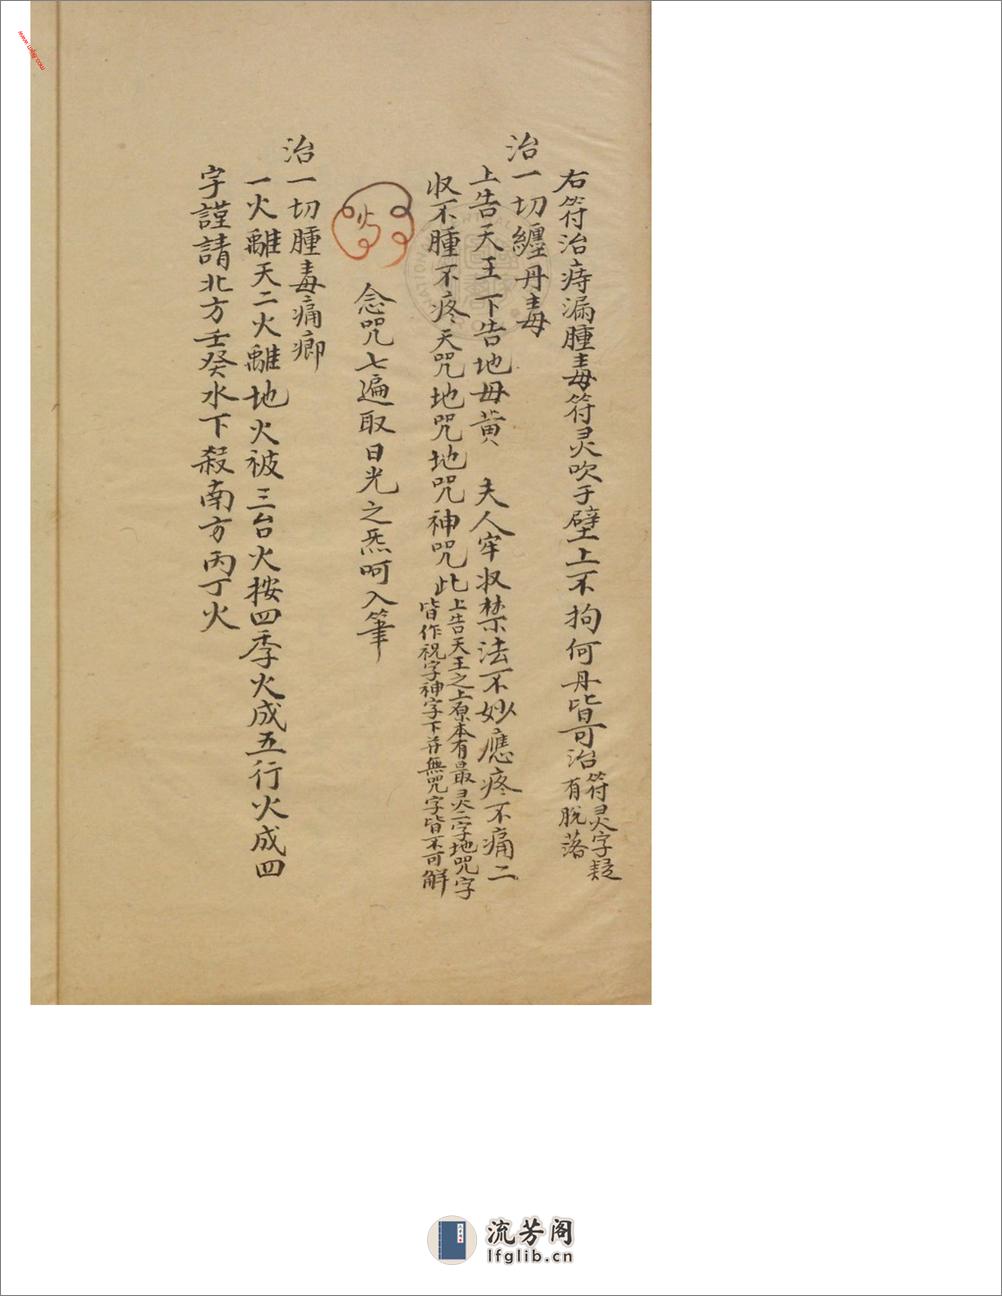 右符治痔漏腫毒符灵吹于壁上不拘何丹皆可治符灵字疑
有脫落
治一切纏丹毒
上告天王下告地毋黄 夫人牢收禁法不妙應疼不痛二
收不腫不疼天咒地咒地咒神咒此上告天王之上原本有最灵二字地咒字
皆作祝字神字下並無咒字皆不可解
念咒七遍取日光之炁呵入筆
治一切腫毒痛瘹
一火離天二火離地火被三台火按四季火成五行火成四
字謹請北方壬癸水下殺南方丙丁火
流芳阁
lfglib.cn